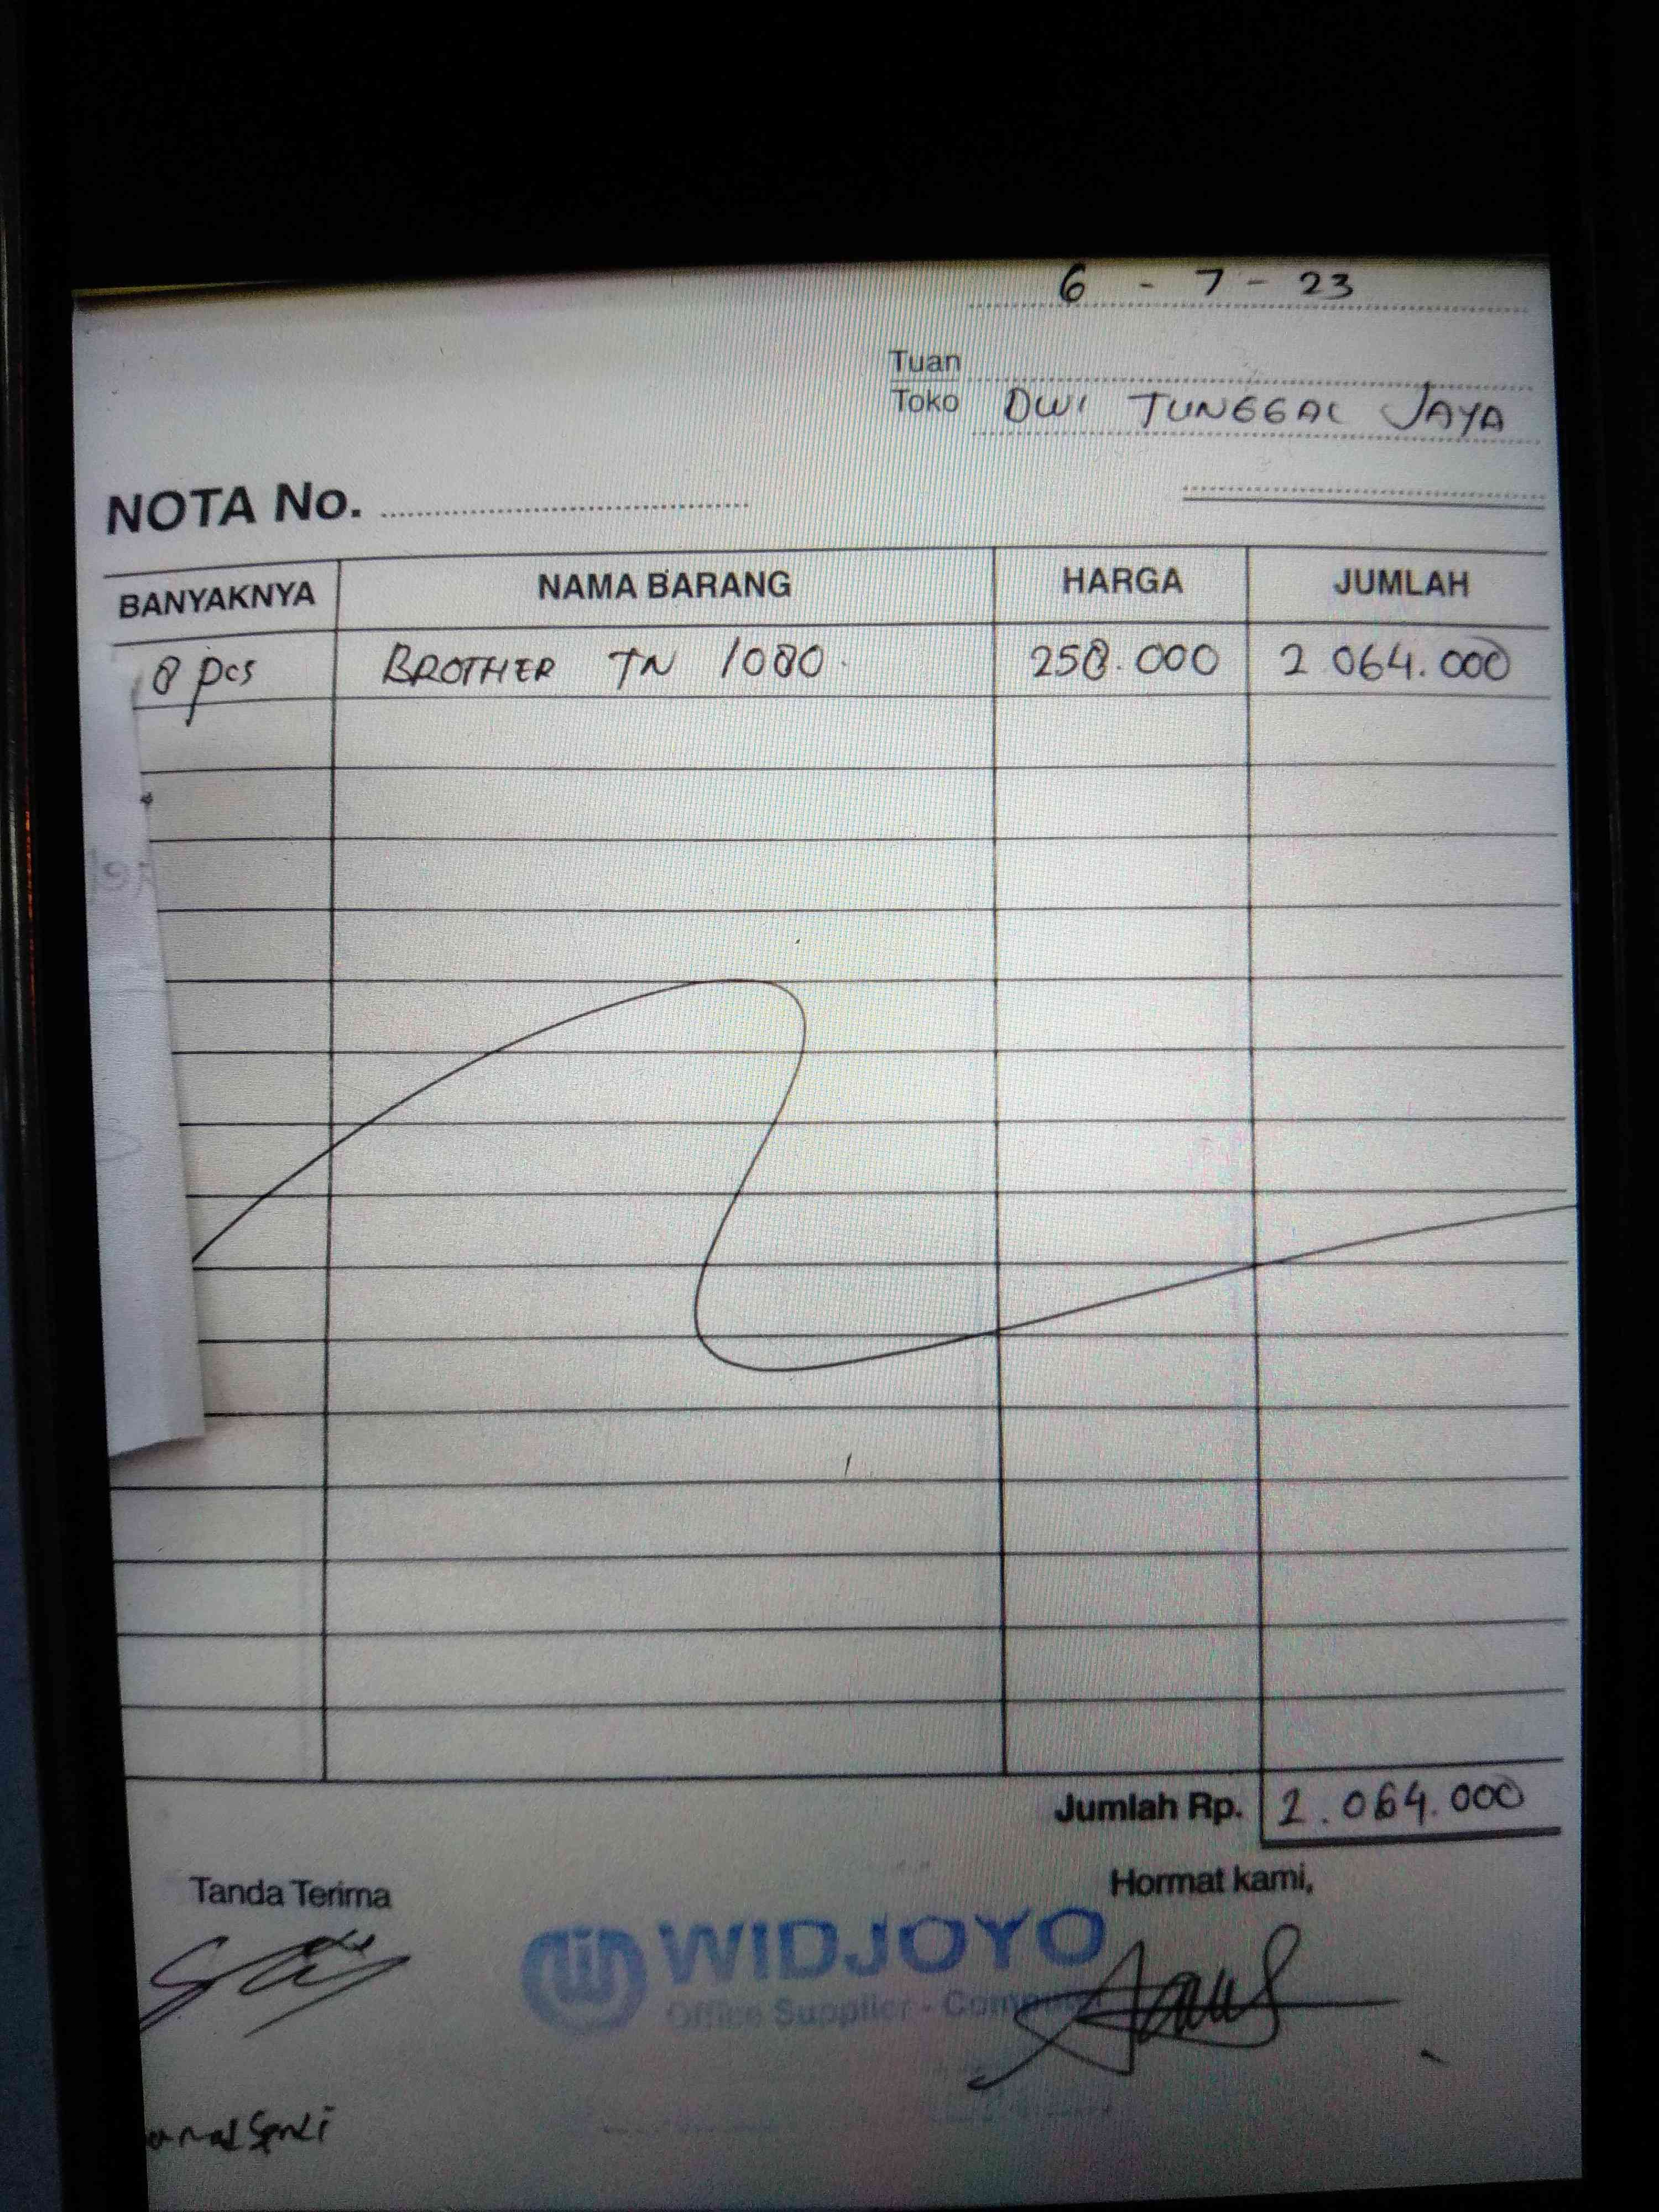 6 - 7 - 23
Tuan
Toko DWI TUNGGAL JAYA
NOTA No.
BANYAKNYA NAMA BARANG HARGA JUMLAH
8 pcs BROTHER TN 1080 258.000 2 064.000
Jumlah Rp. 2.064.000
Tanda Terima Hormat kami,
WIDJOYO
Office Supplier - Computer